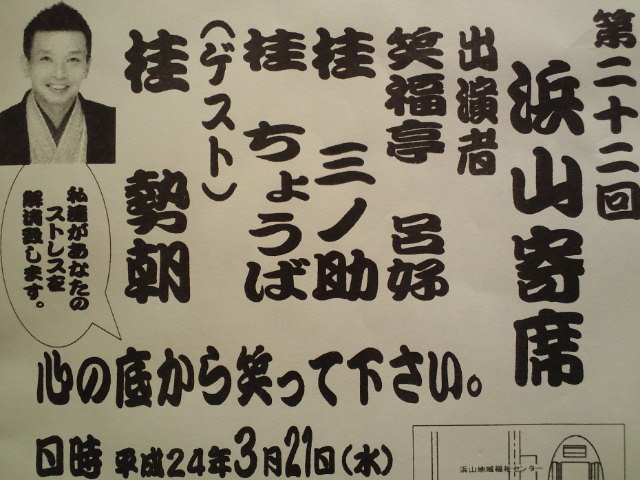 第二十二回
浜山寄席
出演者
笑福亭 呂好
桂 三ノ助
桂 ちょうば
(ゲスト)
桂 勢朝
私達があなたの
ストレスを
解消致します。
心の底から笑って下さい。
日時 平成24年3月21日(水)
浜山地域福祉センター